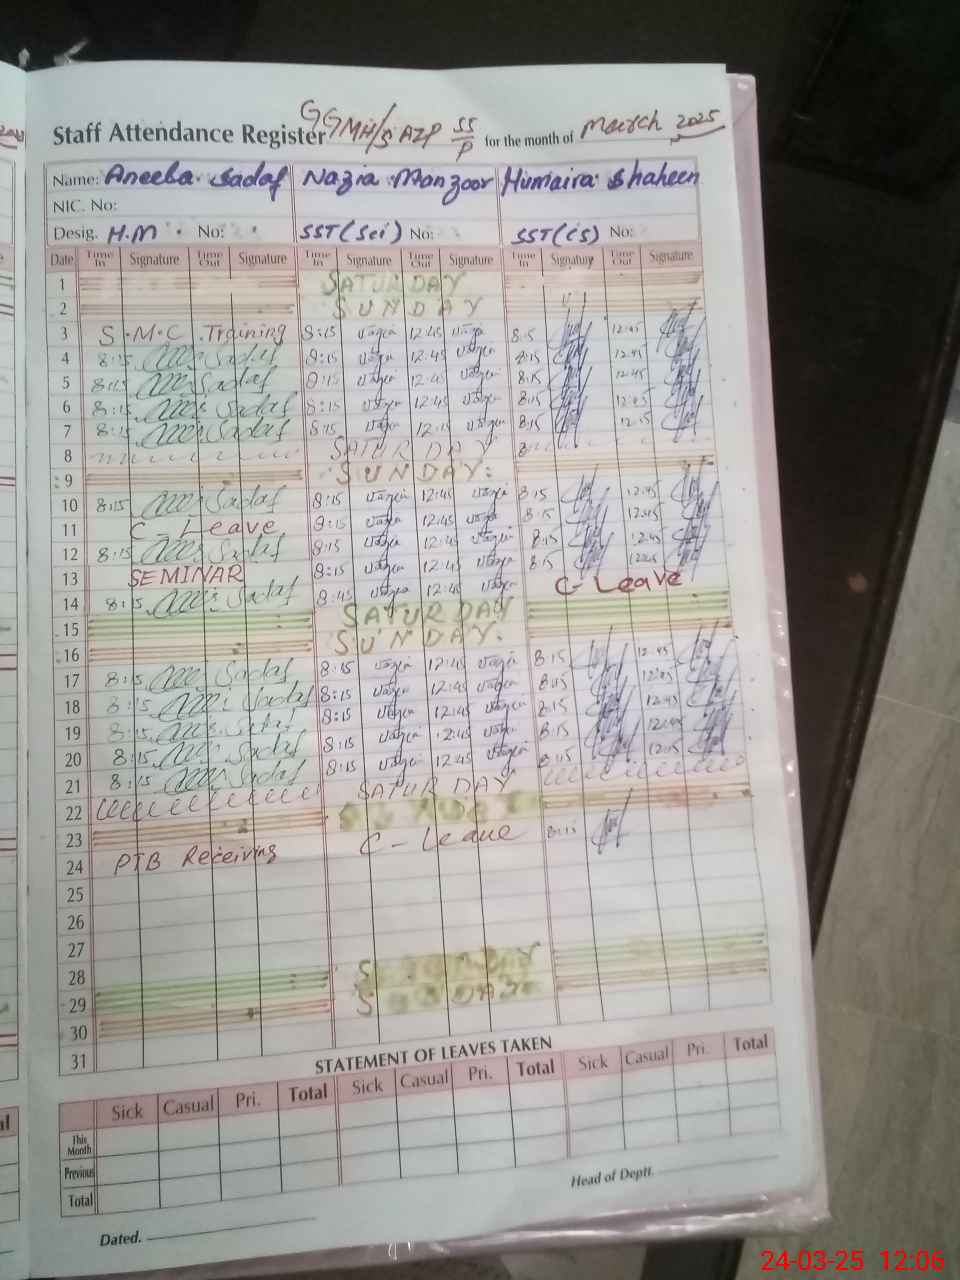 Staff Attendance Register GGMH/S AZP SS/P for the month of March 2025
Name: Aneeba Sadaf Nazia Manzoor Humaira Shaheen
NIC. No:
Desig. H.M No: SST(Sci) No: SST(CS) No:
Date Time In Signature Time Out Signature Time In Signature Time Out Signature Time In Signature Time Out Signature
1 SATURDAY
2 SUNDAY
3 S.M.C. Training 8:15 12:45 8:15 12:45
4 8:15 Sadaf 8:15 12:45 8:15 12:45
5 8:15 Sadaf 8:15 12:45 8:15 12:45
6 8:15 Sadaf 8:15 12:45 8:15 12:45
7 8:15 Sadaf 8:15 12:15 8:15 12:15
8 SATURDAY
9 SUNDAY
10 8:15 Sadaf 8:15 12:45 8:15 12:45
11 C-Leave 8:15 12:45 8:15 12:45
12 8:15 Sadaf 8:15 12:45 8:15 12:45
13 SEMINAR 8:15 12:45 8:15 12:45
14 8:15 Sadaf 8:45 12:45 C-Leave
15 SATURDAY
16 SUNDAY
17 8:15 Sadaf 8:15 12:45 8:15 12:45
18 8:15 Sadaf 8:15 12:45 8:15 12:45
19 8:15 Sadaf 8:15 12:45 8:15 12:45
20 8:15 Sadaf 8:15 12:45 8:15 12:45
21 8:15 Sadaf 8:15 12:45 8:15 12:15
22 SATURDAY
23
24 PTB Receiving C-Leave 8:15
25
26
27
28
29
30
31
STATEMENT OF LEAVES TAKEN
Sick Casual Pri. Total Sick Casual Pri. Total Sick Casual Pri. Total
This Month
Previous
Total
Head of Deptt.
Dated.
24-03-25 12:06